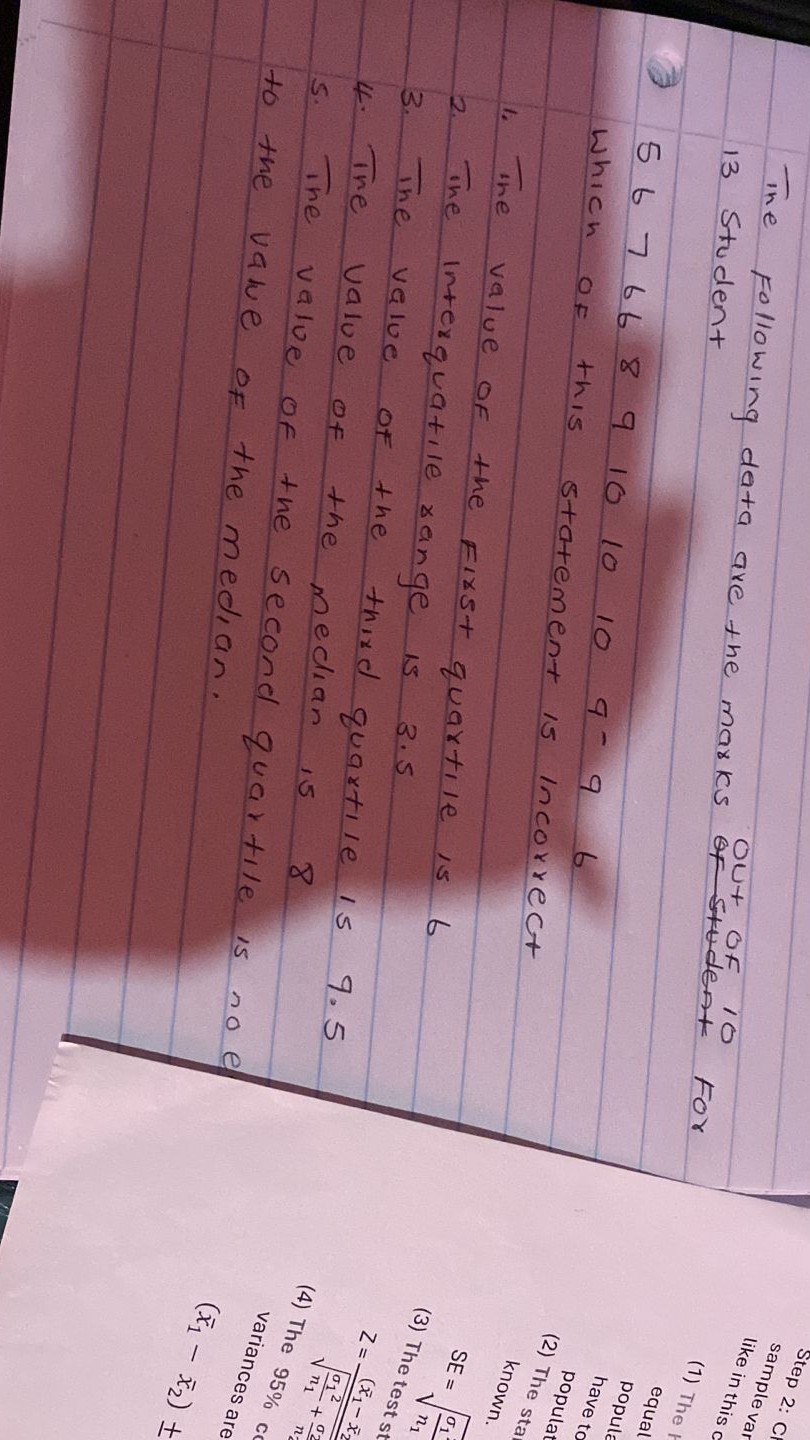 The following data are the marks out of 10
of student for
13 student
5 6 7 6 6 8 9 10 10 10 9 - 9 6
which of this statement is incorrect
1. The value of the first quartile is 6
2. The interquatile range is 3.5
3. The value of the third quartile is 9.5
4. The value of the median is 8
5. The value of the second quartile is no e
to the value of the median.
Step 2: C
sample var
like in this c
(1) The
equal
popula
have to
populat
(2) The sta
known.
SE = √σ₁
n₁
(3) The test st
Z = (x̄₁ - x̄₂
√σ₁² + σ₂
n₁ n₂
(4) The 95% co
variances are
(x̄₁ - x̄₂) ±